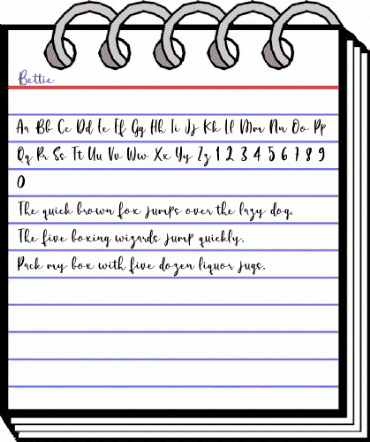 Bettie
Aa Bb Cc Dd Ee Ff Gg Hh Ii Jj Kk Ll Mm Nn Oo Pp
Qq Rr Ss Tt Uu Vv Ww Xx Yy Zz 1 2 3 4 5 6 7 8 9
0
The quick brown fox jumps over the lazy dog.
The five boxing wizards jump quickly.
Pack my box with five dozen liquor jugs.